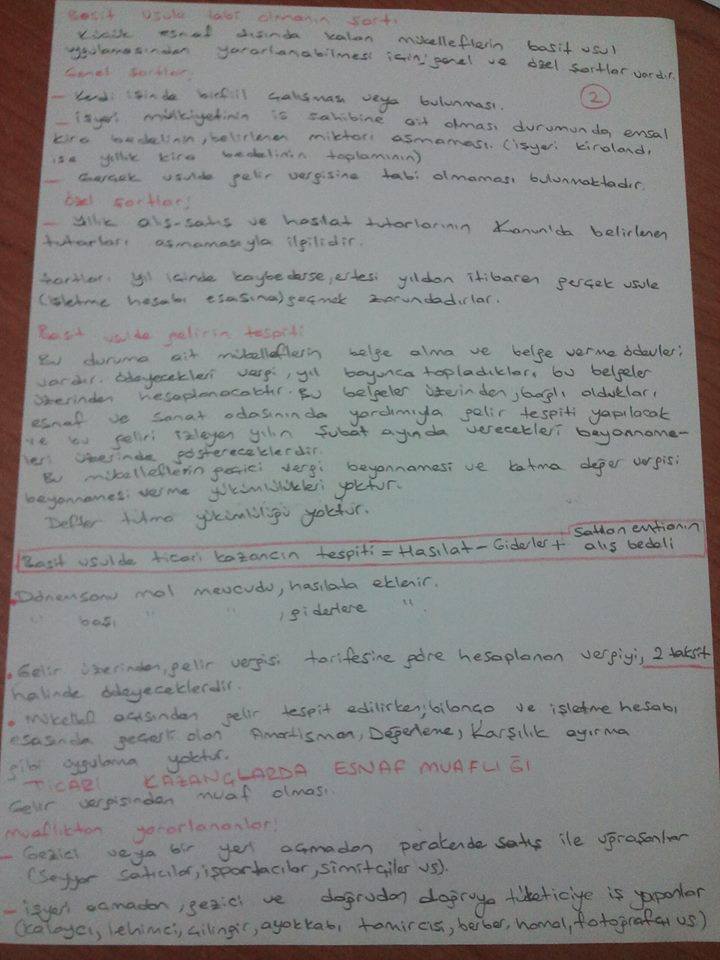 Basit usule tabi olmanın şartı
Küçük esnaf dışında kalan mükelleflerin basit usul
uygulamasından yararlanabilmesi için; genel ve özel şartlar vardır.
Genel şartlar;
- Kendi işinde birfiil çalışması veya bulunması.
2
- İşyeri mülkiyetinin iş sahibine ait olması durumunda, emsal
kira bedelinin, belirlenen miktarı aşmaması. (işyeri kiralandı,
ise yıllık kira bedelinin toplamının)
- Gerçek usulde gelir vergisine tabi olmaması bulunmaktadır.
Özel şartlar;
- Yıllık alış-satış ve hasılat tutarlarının Kanun'da belirlenen
tutarları aşmamasıyla ilgilidir.
Şartları yıl içinde kaybederse, ertesi yıldan itibaren gerçek usule
(işletme hesabı esasına) geçmek zorundadırlar.
Basit usulde gelirin tespiti
Bu duruma ait mükelleflerin belge alma ve belge verme ödevleri
vardır. Ödeyecekleri vergi, yıl boyunca topladıkları, bu belgeler
üzerinden hesaplanacaktır. Bu belgeler üzerinden, bağlı oldukları
esnaf ve sanat odasınında yardımıyla gelir tespiti yapılacak
ve bu geliri izleyen yılın Şubat ayında verecekleri beyanname-
leri üzerinde göstereceklerdir.
Bu mükelleflerin geçici vergi beyannamesi ve katma değer vergisi
beyannamesi verme yükümlülükleri yoktur.
Defter tutma yükümlülüğü yoktur.
Basit usulde ticari kazancın tespiti = Hasılat - Giderler + satılan emtianın
alış bedeli
• Dönemsonu mal mevcudu, hasılata eklenir.
" başı " ", giderlere ".
• Gelir üzerinden, gelir vergisi tarifesine göre hesaplanan vergiyi, 2 taksit
halinde ödeyeceklerdir.
• Mükellef açısından gelir tespit edilirken; bilanço ve işletme hesabı
esasında geçerli olan Amortisman, Değerleme, Karşılık ayırma
gibi uygulama yoktur.
TİCARİ KAZANÇLARDA ESNAF MUAFLIĞI
Gelir vergisinden muaf olması.
Muaflıktan yararlananlar;
- Gezici veya bir yeri açmadan perakende satış ile uğraşanlar
(Seyyar satıcılar, işportacılar, simitçiler vs).
- işyeri açmadan, gezici ve doğrudan doğruya tüketiciye iş yapanlar
(Kalaycı, lehimci, çilingir, ayakkabı tamircisi, berber, hamal, fotoğrafçı vs)